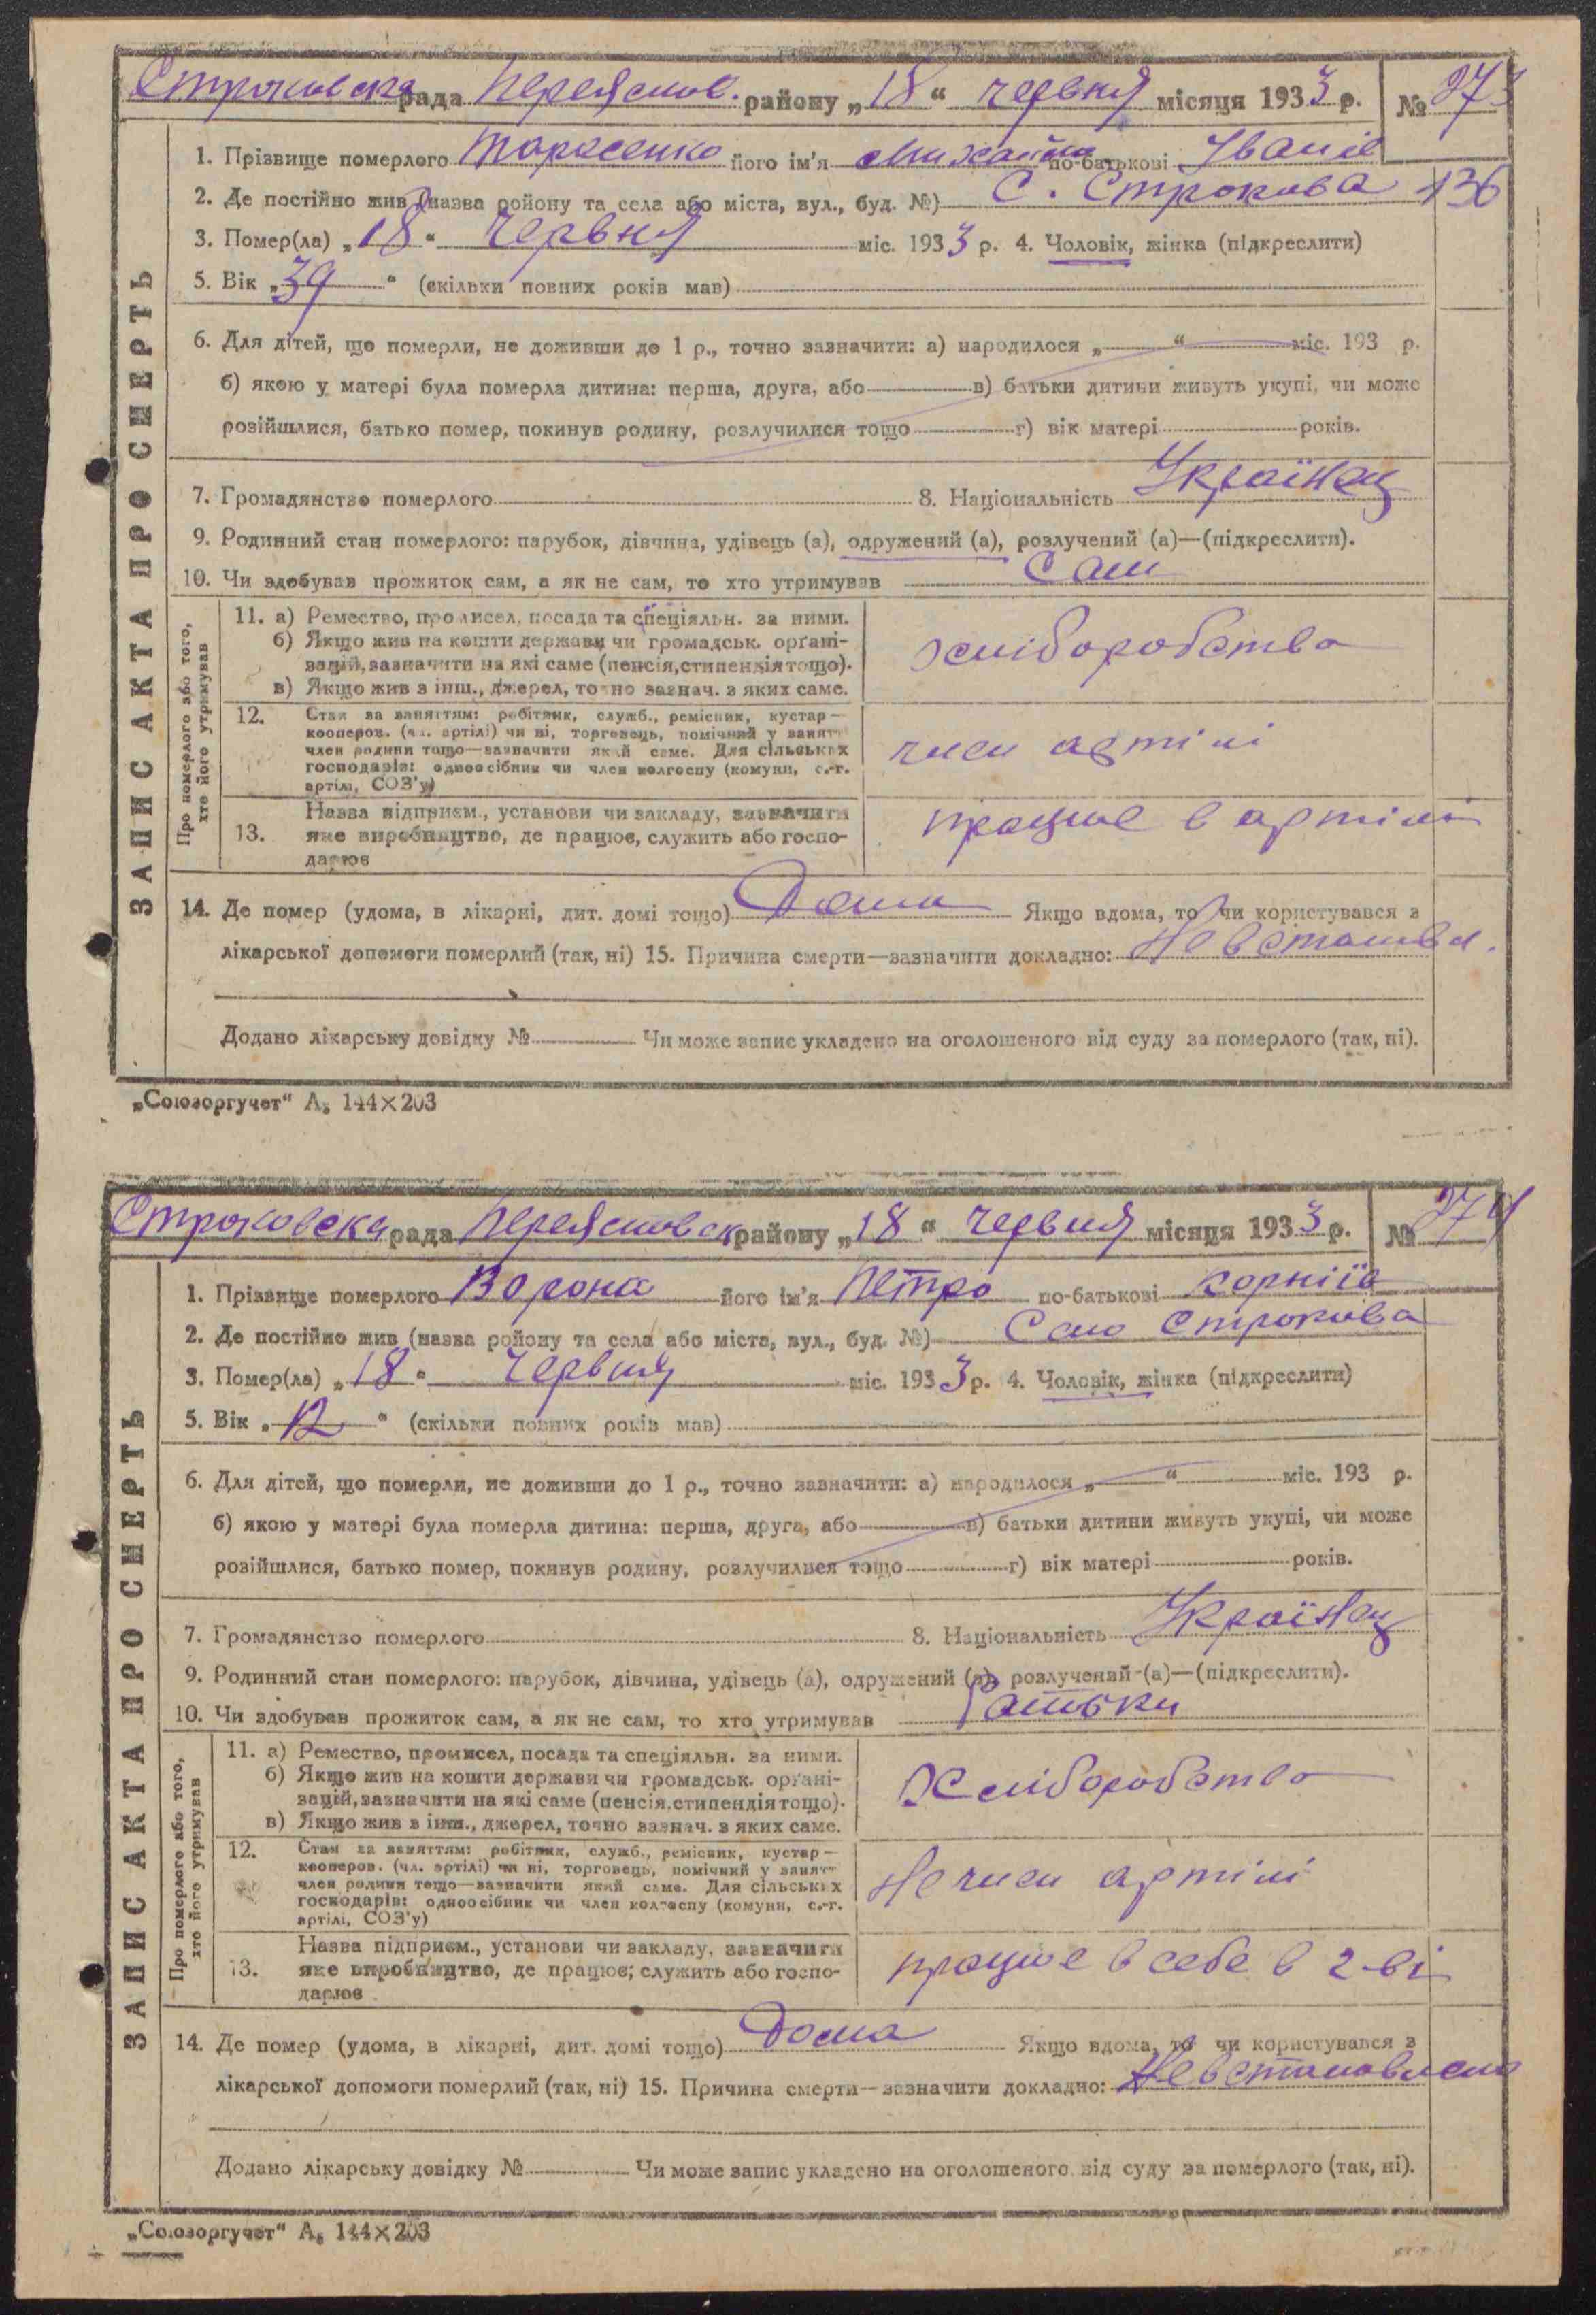 Строковска рада Переяслов. району „18“ червня місяця 1933 р. № 273
1. Прізвище померлого Тарасенко його ім'я Михайло по-батькові Іванів
2. Де постійно жив (назва ройону та села або міста, вул., буд. №) С. Строкова 136
3. Помер(ла) „18“ Червня міс. 1933 р. 4. Чоловік, жінка (підкреслити)
5. Вік „39“ (скільки повних років мав)
6. Для дітей, що померли, не доживши до 1 р., точно зазначити: а) народилося „ “ міс. 193 р.
б) якою у матері була померла дитина: перша, друга, або в) батьки дитини живуть укупі, чи може
розійшлися, батько помер, покинув родину, розлучилися тощо г) вік матері років.
7. Громадянство померлого 8. Національність Українец
9. Родинний стан померлого: парубок, дівчина, удівець (а), одружений (а), розлучений (а)—(підкреслити).
10. Чи здобував прожиток сам, а як не сам, то хто утримував Сам
ЗАПИС АКТА ПРО СМЕРТЬ
Про померлого або того, хто його утримував
11. а) Ремество, промисел, посада та спеціяльн. за ними.
б) Якщо жив на кошти держави чи громадськ. орґані-
зацій, зазначити на які саме (пенсія, стипендія тощо).
в) Якщо жив з інш., джерел, точно зазнач. з яких саме.
хліборобство
12. Стан за заняттям: робітник, служб., ремісник, кустар—
кооперов. (чл. артілі) чи ні, торговець, помічний у занятт
член родини тощо—зазначити який саме. Для сільських
господарів: одноосібник чи член колгоспу (комуни, с.-г.
артілі, СОЗ'у)
член артілі
13. Назва підприєм., установи чи закладу, зазначити
яке виробництво, де працює, служить або госпо-
дарює
працює в артілі
14. Де помер (удома, в лікарні, дит. домі тощо) Дома Якщо вдома, то чи користувався з
лікарської допомоги померлий (так, ні) 15. Причина смерти—зазначити докладно: Не встановл.
Додано лікарську довідку № Чи може запис укладено на оголошеного від суду за померлого (так, ні).
„Союзоргучет“ А₅ 144×203
Строковска рада Переясловск району „18“ червня місяця 1933 р. № 274
1. Прізвище померлого Ворона його ім'я Петро по-батькові Корніїв
2. Де постійно жив (назва ройону та села або міста, вул., буд. №) Село Строкова
3. Помер(ла) „18“ Червня міс. 1933 р. 4. Чоловік, жінка (підкреслити)
5. Вік „12“ (скільки повних років мав)
6. Для дітей, що померли, не доживши до 1 р., точно зазначити: а) народилося „ “ міс. 193 р.
б) якою у матері була померла дитина: перша, друга, або в) батьки дитини живуть укупі, чи може
розійшлися, батько помер, покинув родину, розлучилися тощо г) вік матері років.
7. Громадянство померлого 8. Національність Українец
9. Родинний стан померлого: парубок, дівчина, удівець (а), одружений (а), розлучений (а)—(підкреслити).
10. Чи здобував прожиток сам, а як не сам, то хто утримував батьки
ЗАПИС АКТА ПРО СМЕРТЬ
Про померлого або того, хто його утримував
11. а) Ремество, промисел, посада та спеціяльн. за ними.
б) Якщо жив на кошти держави чи громадськ. орґані-
зацій, зазначити на які саме (пенсія, стипендія тощо).
в) Якщо жив з інш., джерел, точно зазнач. з яких саме.
Хліборобство
12. Стан за заняттям: робітник, служб., ремісник, кустар—
кооперов. (чл. артілі) чи ні, торговець, помічний у занятт
член родини тощо—зазначити який саме. Для сільських
господарів: одноосібник чи член колгоспу (комуни, с.-г.
артілі, СОЗ'у)
Не член артілі
13. Назва підприєм., установи чи закладу, зазначити
яке виробництво, де працює, служить або госпо-
дарює
працює в себе в г-ві
14. Де помер (удома, в лікарні, дит. домі тощо) Дома Якщо вдома, то чи користувався з
лікарської допомоги померлий (так, ні) 15. Причина смерти—зазначити докладно: Не встановлено
Додано лікарську довідку № Чи може запис укладено на оголошеного від суду за померлого (так, ні).
„Союзоргучет“ А₅ 144×203